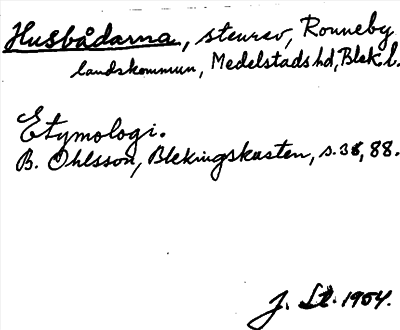 Husbådarna, stenrev, Ronneby
landskommun, Medelstads hd, Blek. l.
Etymologi.
B. Ohlsson, Blekingskusten, s. 38, 88.
J. St. 1954.